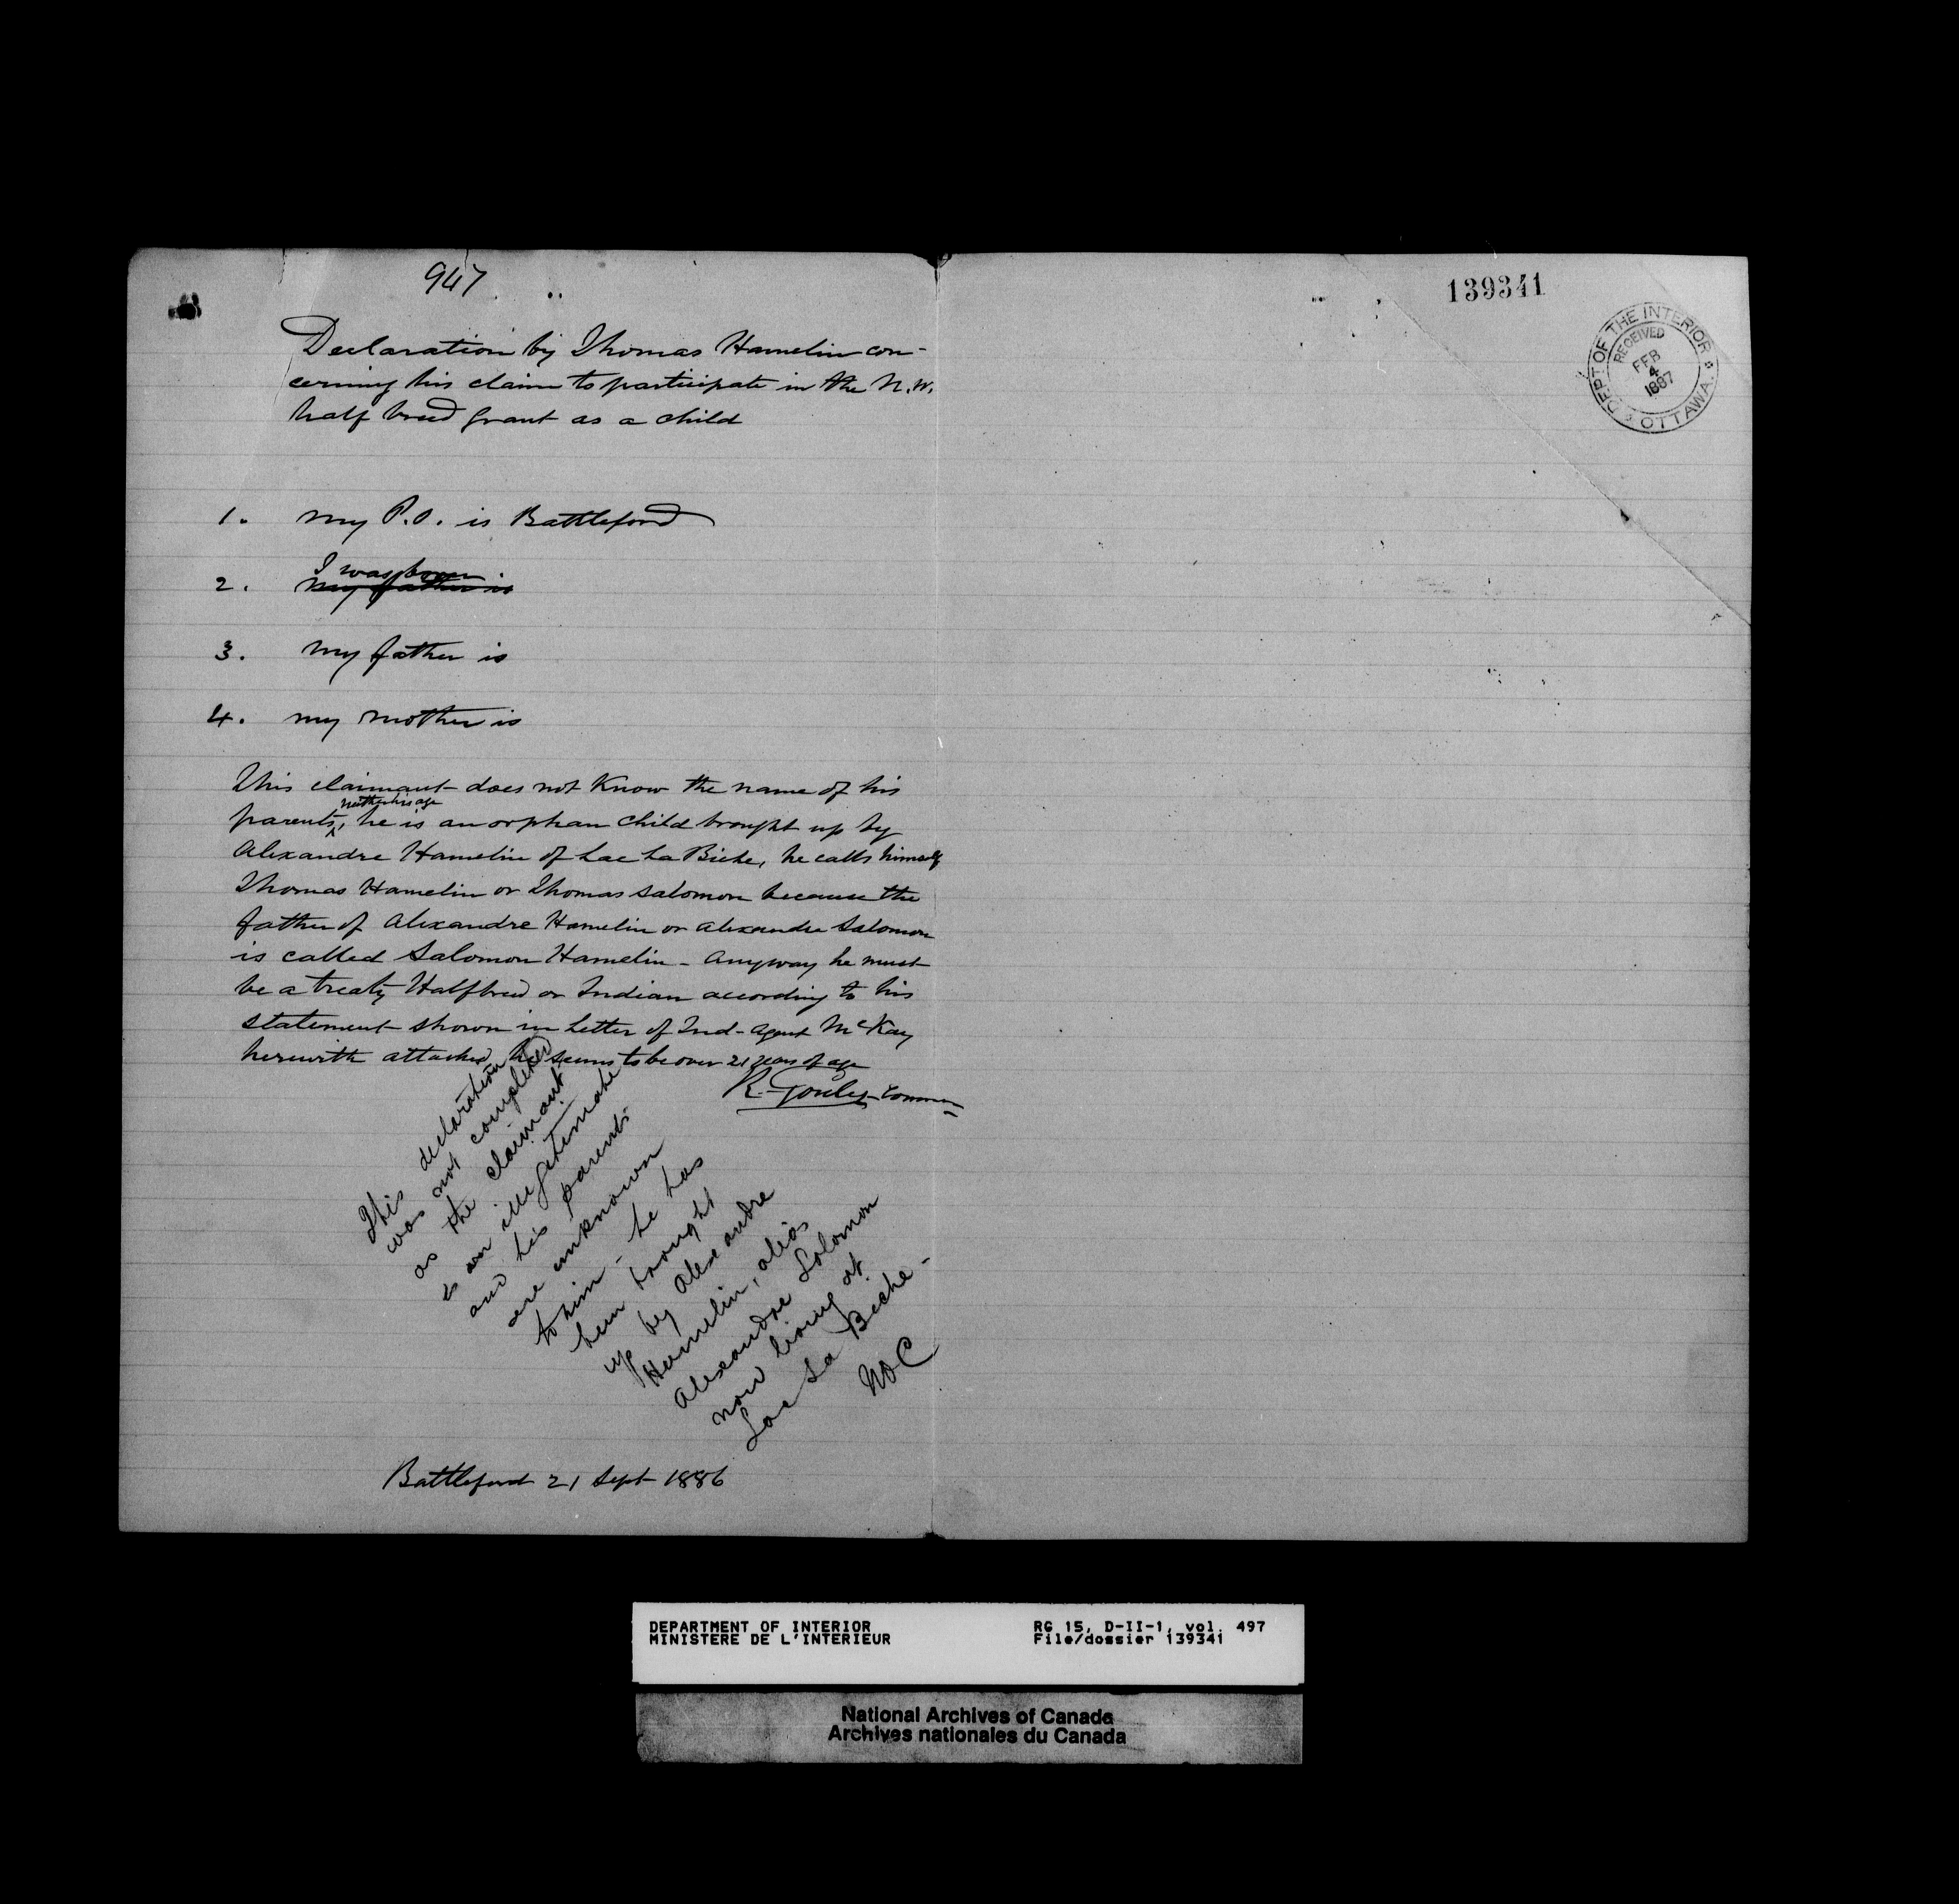 947
Declaration by Thomas Hamelin con-
cerning his claim to participate in the N.W.
half breed grant as a child
1. my P.O. is Battleford
I was born
2. my father is
3. my father is
4. my mother is
This claimant does not know the name of his
neither his age
parents, he is an orphan child brought up by
Alexandre Hamelin of Lac La Biche, he calls himself
Thomas Hamelin or Thomas Salomon because the
father of Alexandre Hamelin or Alexandre Salomon
is called Salomon Hamelin - anyway he must
be a treaty Halfbreed or Indian according to his
statement shown in letter of Ind-Agent McKay
herewith attached he seems to be over 21 years of age
R. Goulet Commr
This declaration
was not completed
as the claimant
is an illegitimate
and his parents
are unknown
to him - he has
been brought
up by Alexandre
Hamelin, alias
Alexandre Solomon
now living at
Lac La Biche -
Battleford 21 Sept 1886
139341
DEPT OF THE INTERIOR
RECEIVED
FEB
4
1887
OTTAWA
DEPARTMENT OF INTERIOR RG 15, D-II-1, vol. 497
MINISTERE DE L'INTERIEUR File/dossier 139341
National Archives of Canada
Archives nationales du Canada